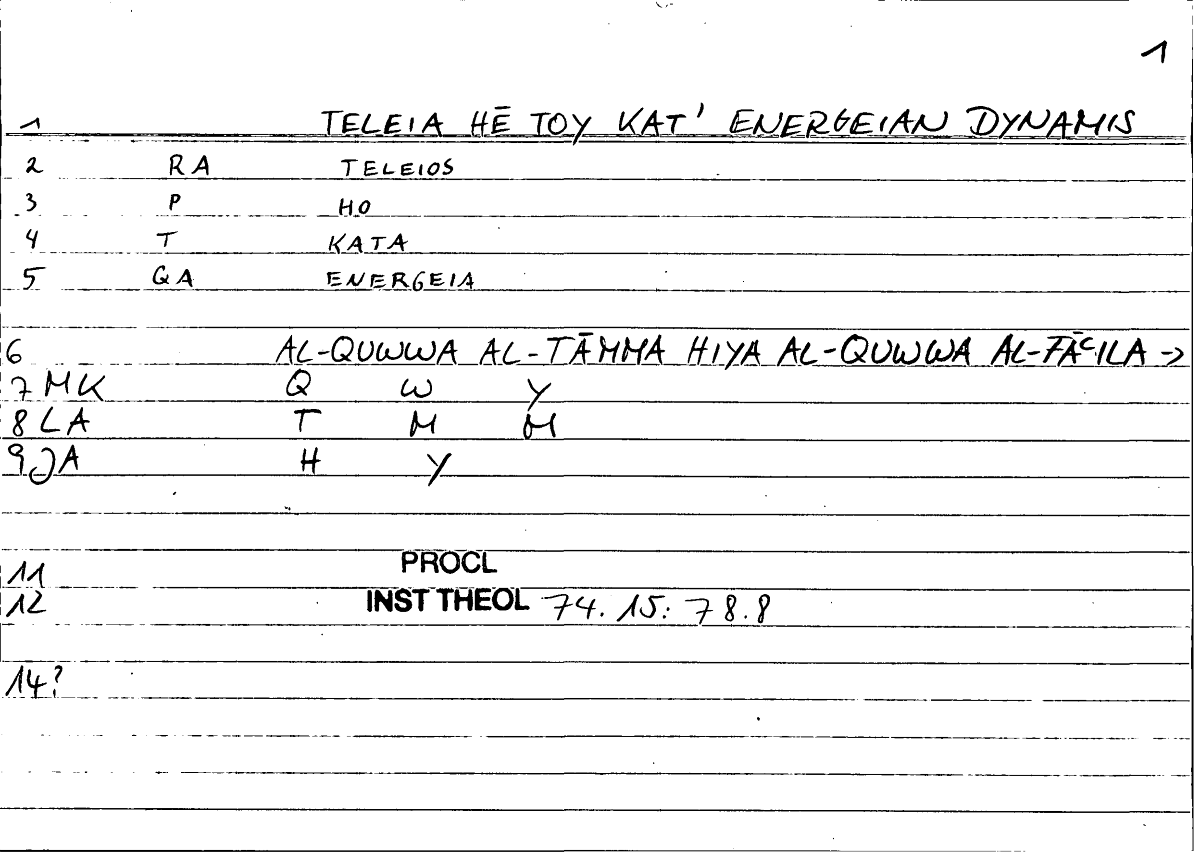 1
1 TELEIA HĒ TOY KAT' ENERGEIAN DYNAMIS
2 RA TELEIOS
3 P HO
4 T KATA
5 QA ENERGEIA
6 AL-QUWWA AL-TĀMMA HIYA AL-QUWWA AL-FĀᶜILA →
7 MK Q W Y
8 LA T M M
9 JA H Y
11 PROCL
12 INST THEOL 74.15: 78.8
14?